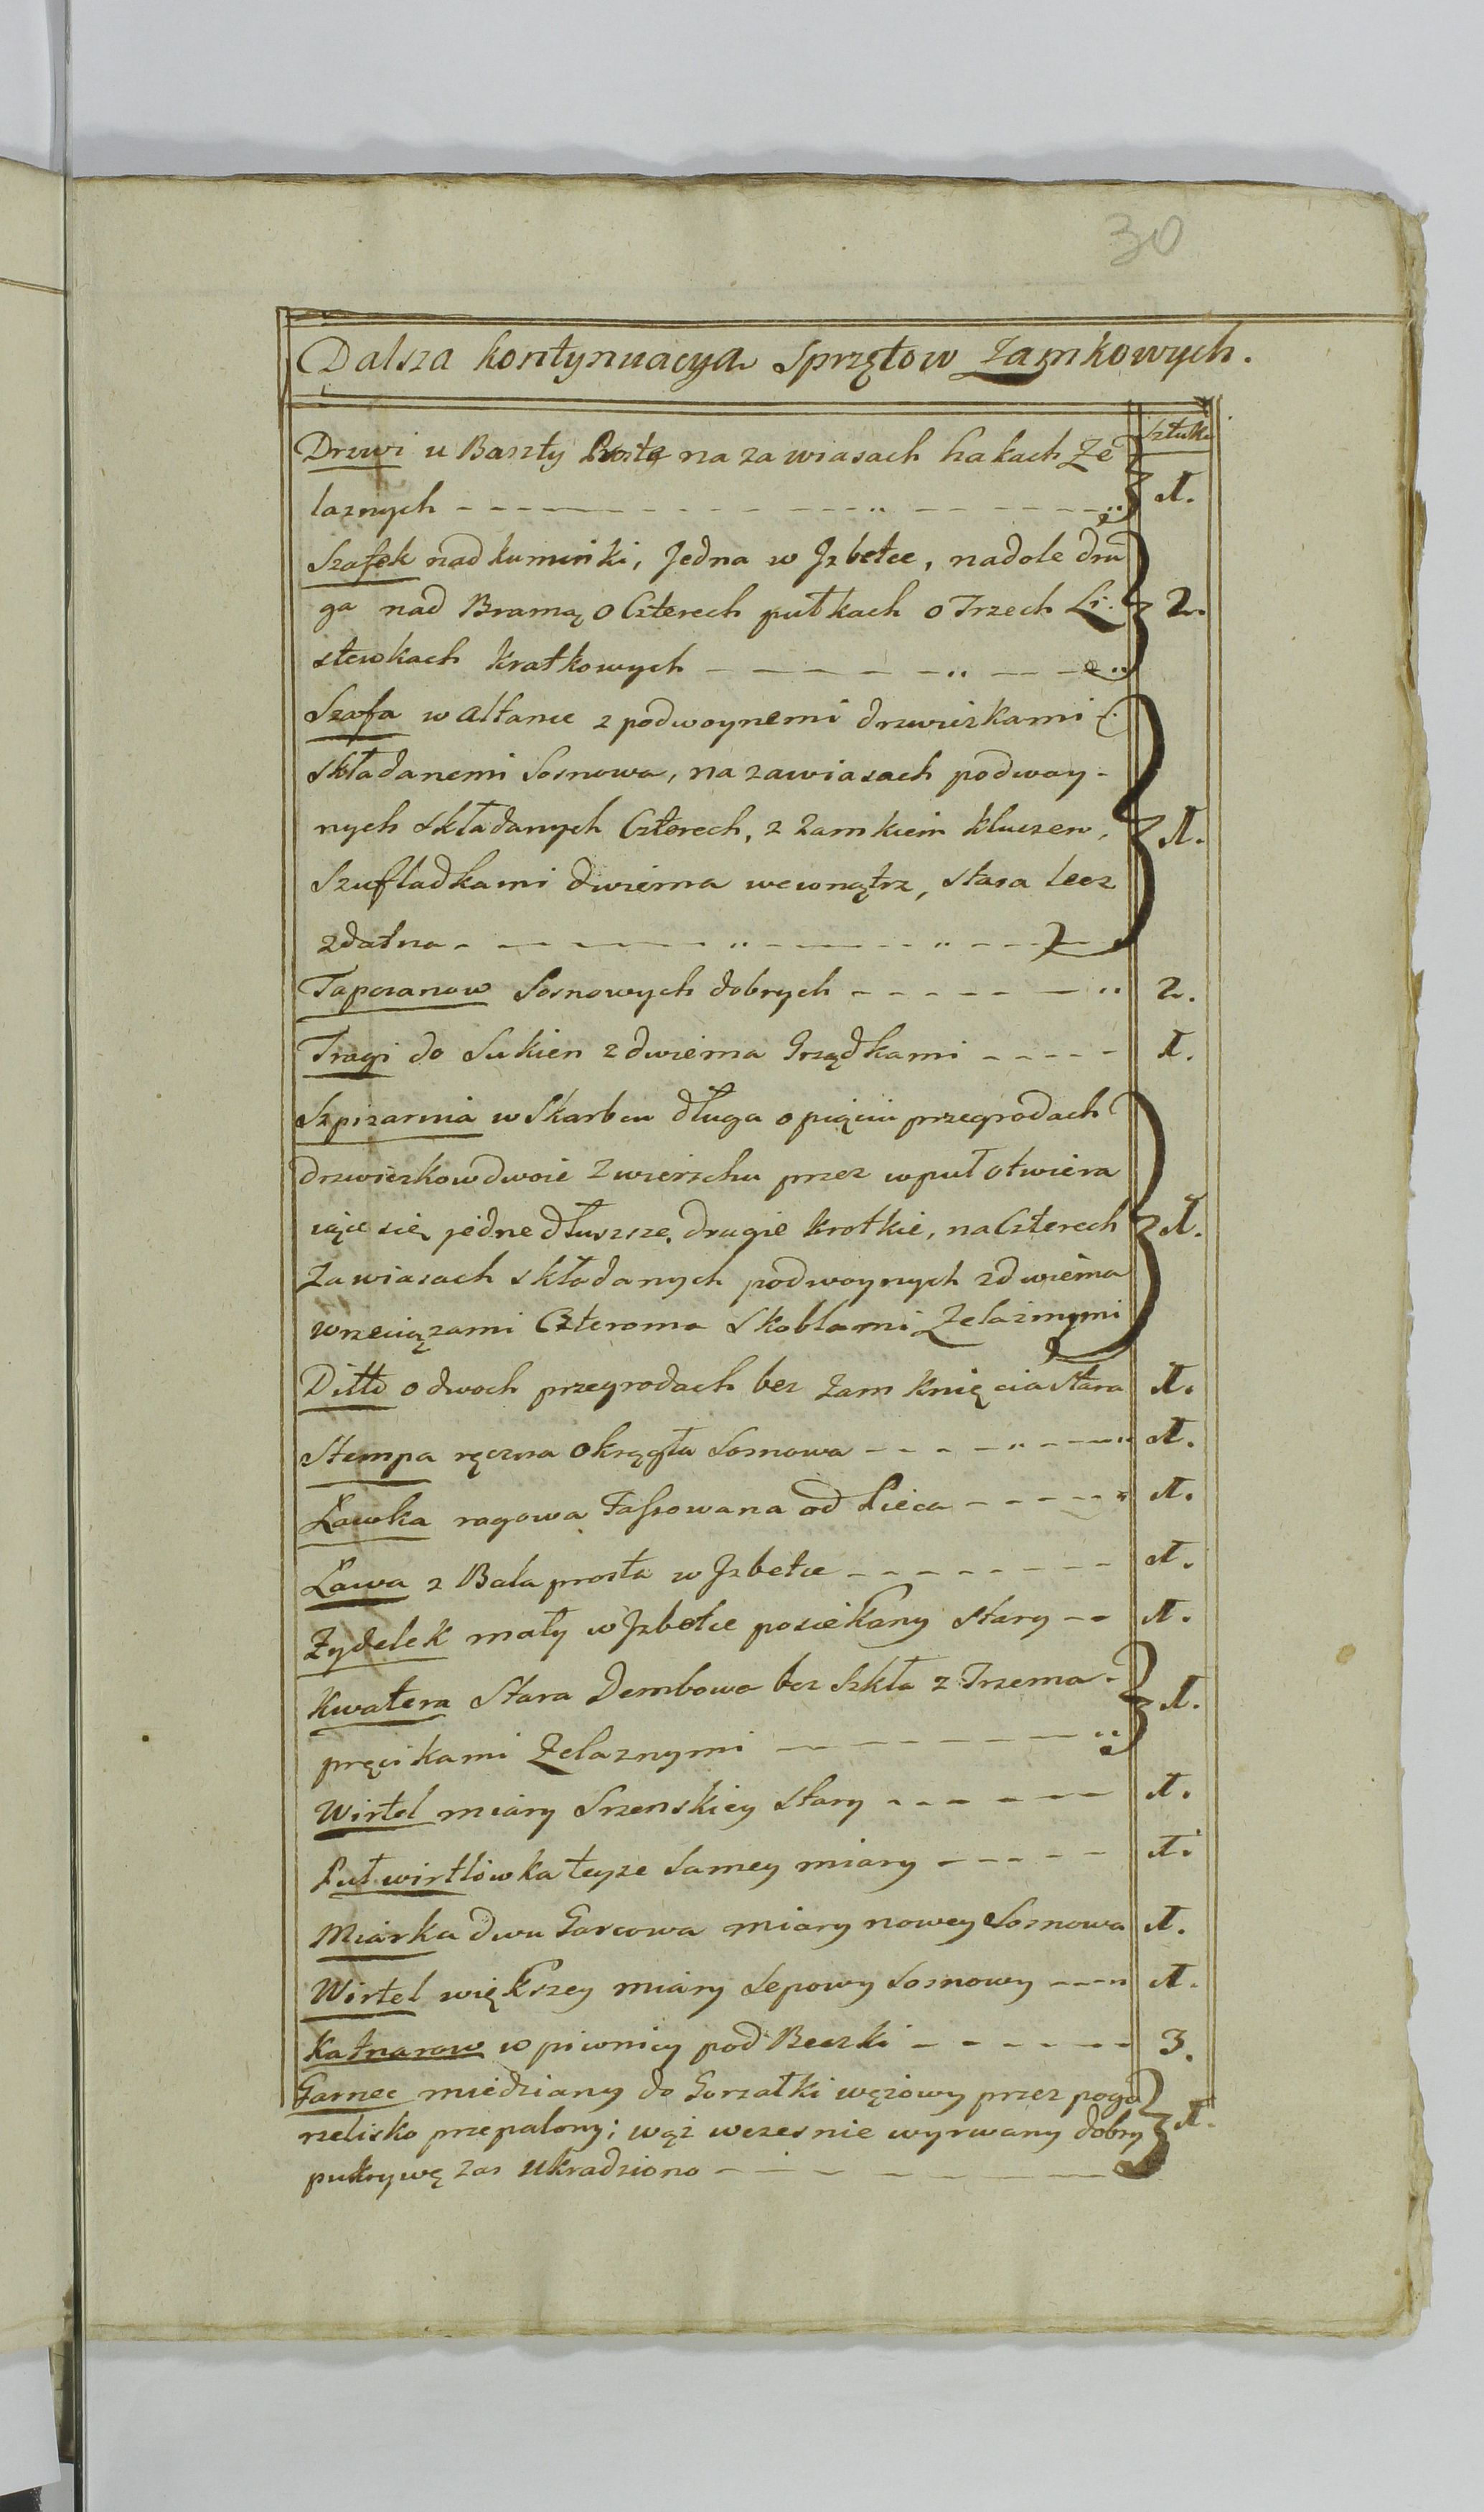 30
Dalsza kontynuacya Sprzętow Zamkowych.
Sztuki
Drzwi u Baszty Proste na zawiasach hakach Że
laznych 1.
Szafek nad kuminki, Jedna w Jzbetce, nadole dru
ga nad Bramą o Czterech pułkach o Trzech Li- 2.
stewkach kratkowych
Szafa w altance z podwoynemi drzwiczkami
składanemi Sosnowa, na zawiasach podwoy-
nych składanych Czterech, z Zamkiem kluczem, 1.
Szufladkami dwiema wewnątrz, stara lecz
zdatna
Tapczanow Sosnowych dobrych 2.
Tragi do Sukien z dwiema Grządkami 1.
Szpizarnia w Skarbcu długa o pięciu przegrodach
drzwiczkow dwoie z wierzchu przez wpuł otwiera
iące się, jedne dłuższe, drugie krotkie, na Czterech 1.
Zawiasach składanych podwoynych z dwiema
wrzeciązami Czteroma Skoblami Żelaznymi
Ditto o dwoch przegrodach bez zamknięcia stara 1.
Stempa ręczna okrągła Sosnowa 1.
Ławka ragowa Fassowana od Pieca 1.
Ława z Bala prosta w Jzbetce 1.
Zydelek mały w Jzbetce posiekany stary 1.
Kwatera Stara Dembowa bez Szkła z Trzema
pręcikami Żelaznymi 1.
Wirtel miary Srzenskiey stary 1.
Puł wirtlowka teyze Samey miary 1.
Miarka dwu Garcowa miary nowey Sosnowa 1.
Wirtel większey miary Sepowy Sosnowy 1.
Katnarow w piwnicy pod Beczki 3.
Garnec miedziany do Gorzałki wężowy przez pogo
rzelisko przepalony; wąż wczesnie wyrwany dobry 1.
pukrywę zas ukradziono